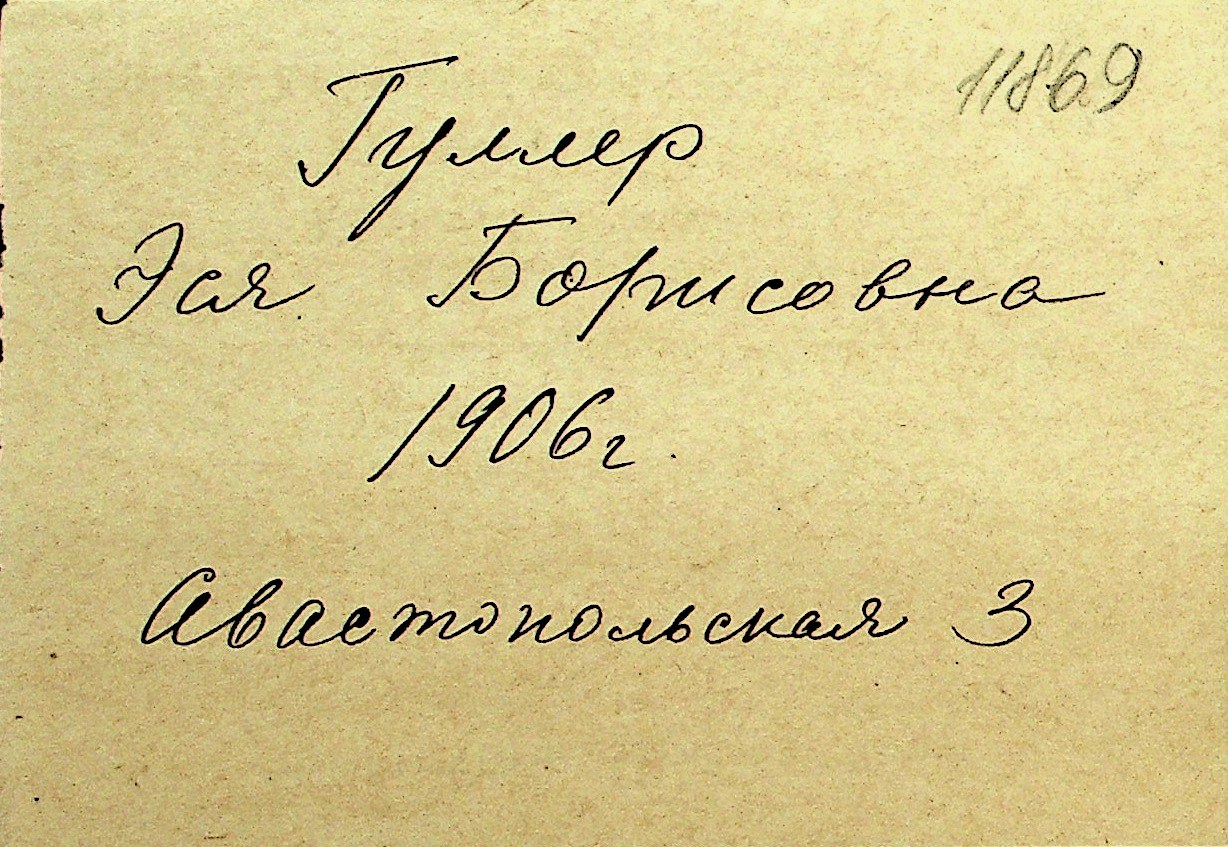 11869
Гуллер
Эся Борисовна
1906г.
Авастопольская 3